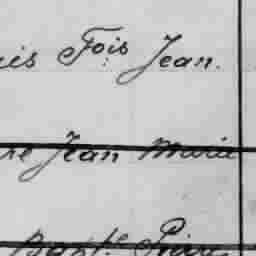 is Fois Jean.
re Jean Marie
Bapte Pierre